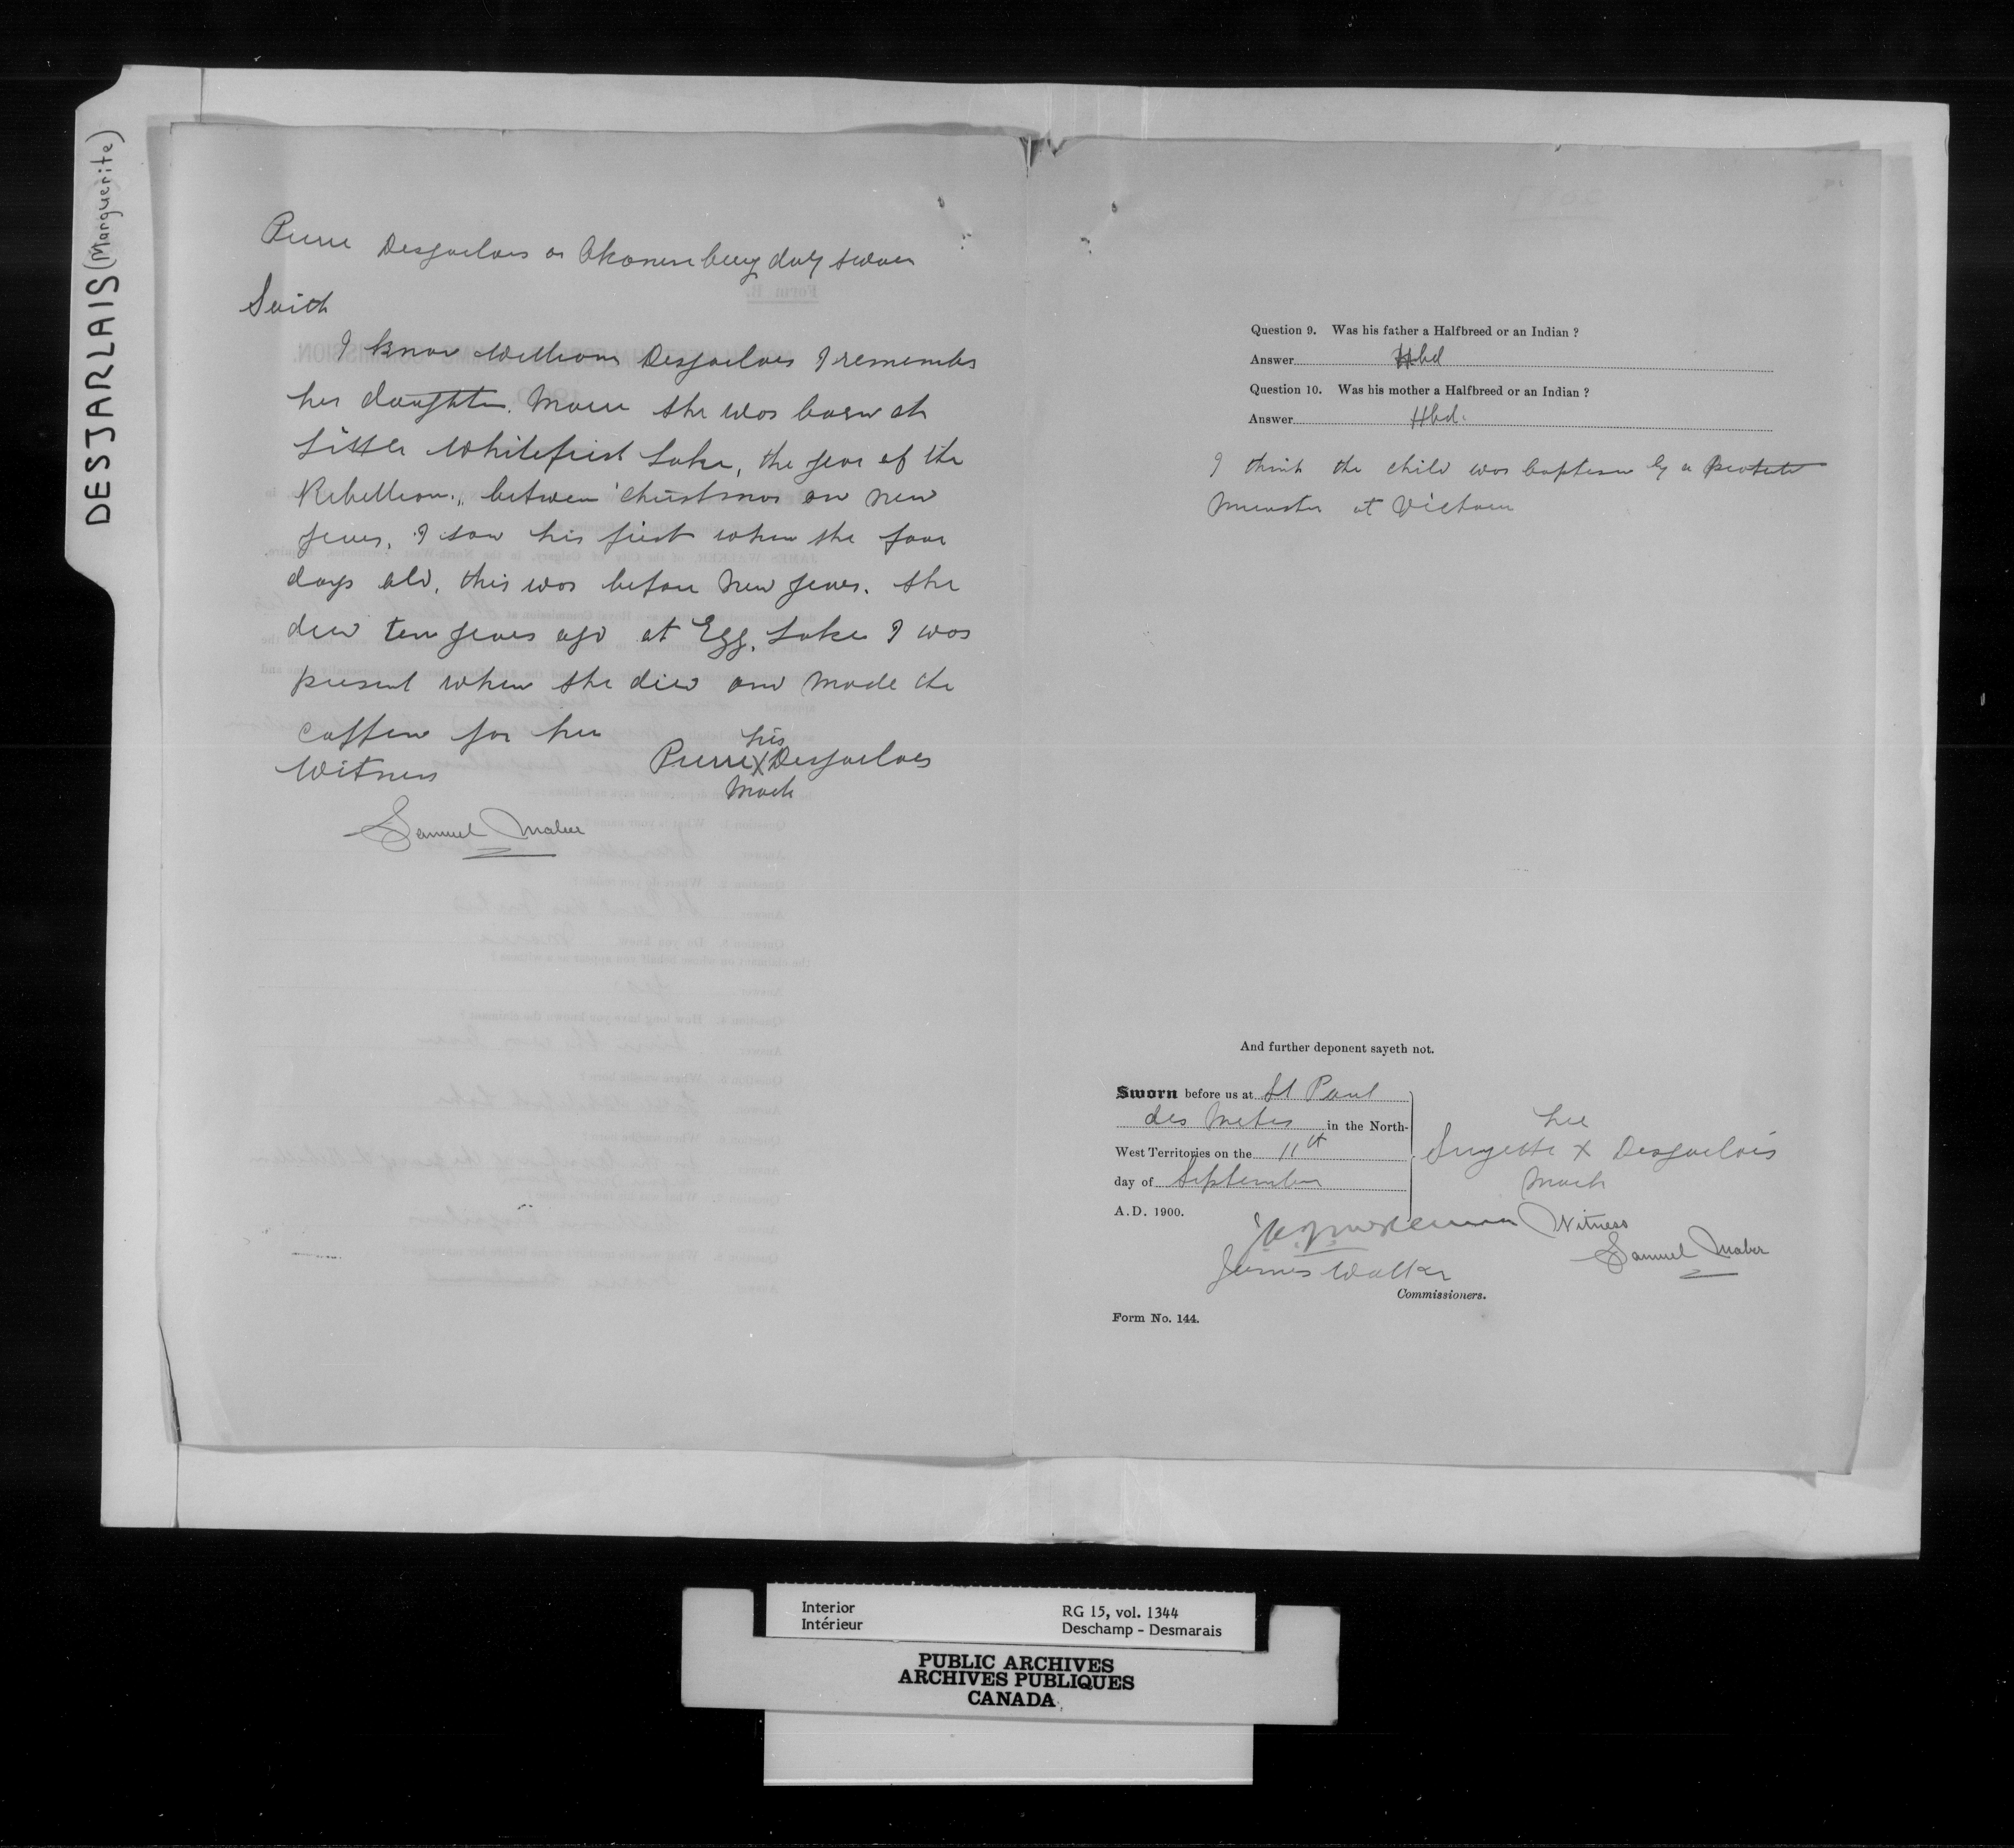 DESJARLAIS (Marguerite)
Pierre Desjarlais or Akonen being duly sworn
Saith
I know William Desjarlais I remember
her daughter. Marie she was born at
Little Whitefish Lake, the year of the
Rebellion, between christmas an new
years, I saw his first when she four
days old, this was before New years. She
died ten years ago at Egg Lake I was
present when she died and made the
coffin for her
his
Pierre X Desjarlais
Mark
Witness
Samuel Maber
Question 9. Was his father a Halfbreed or an Indian ?
Answer Hbd
Question 10. Was his mother a Halfbreed or an Indian ?
Answer Hbd.
I think the child was baptism by a
Minister at Victoria
And further deponent sayeth not.
Sworn before us at St Paul
des Metis in the North-
West Territories on the 11th
day of September
A.D. 1900.
her
Suzette X Desjarlais
Mark
Witness
Samuel Maber
James Walker
Commissioners.
Form No. 144.
Interior
Intérieur
RG 15, vol. 1344
Deschamp - Desmarais
PUBLIC ARCHIVES
ARCHIVES PUBLIQUES
CANADA